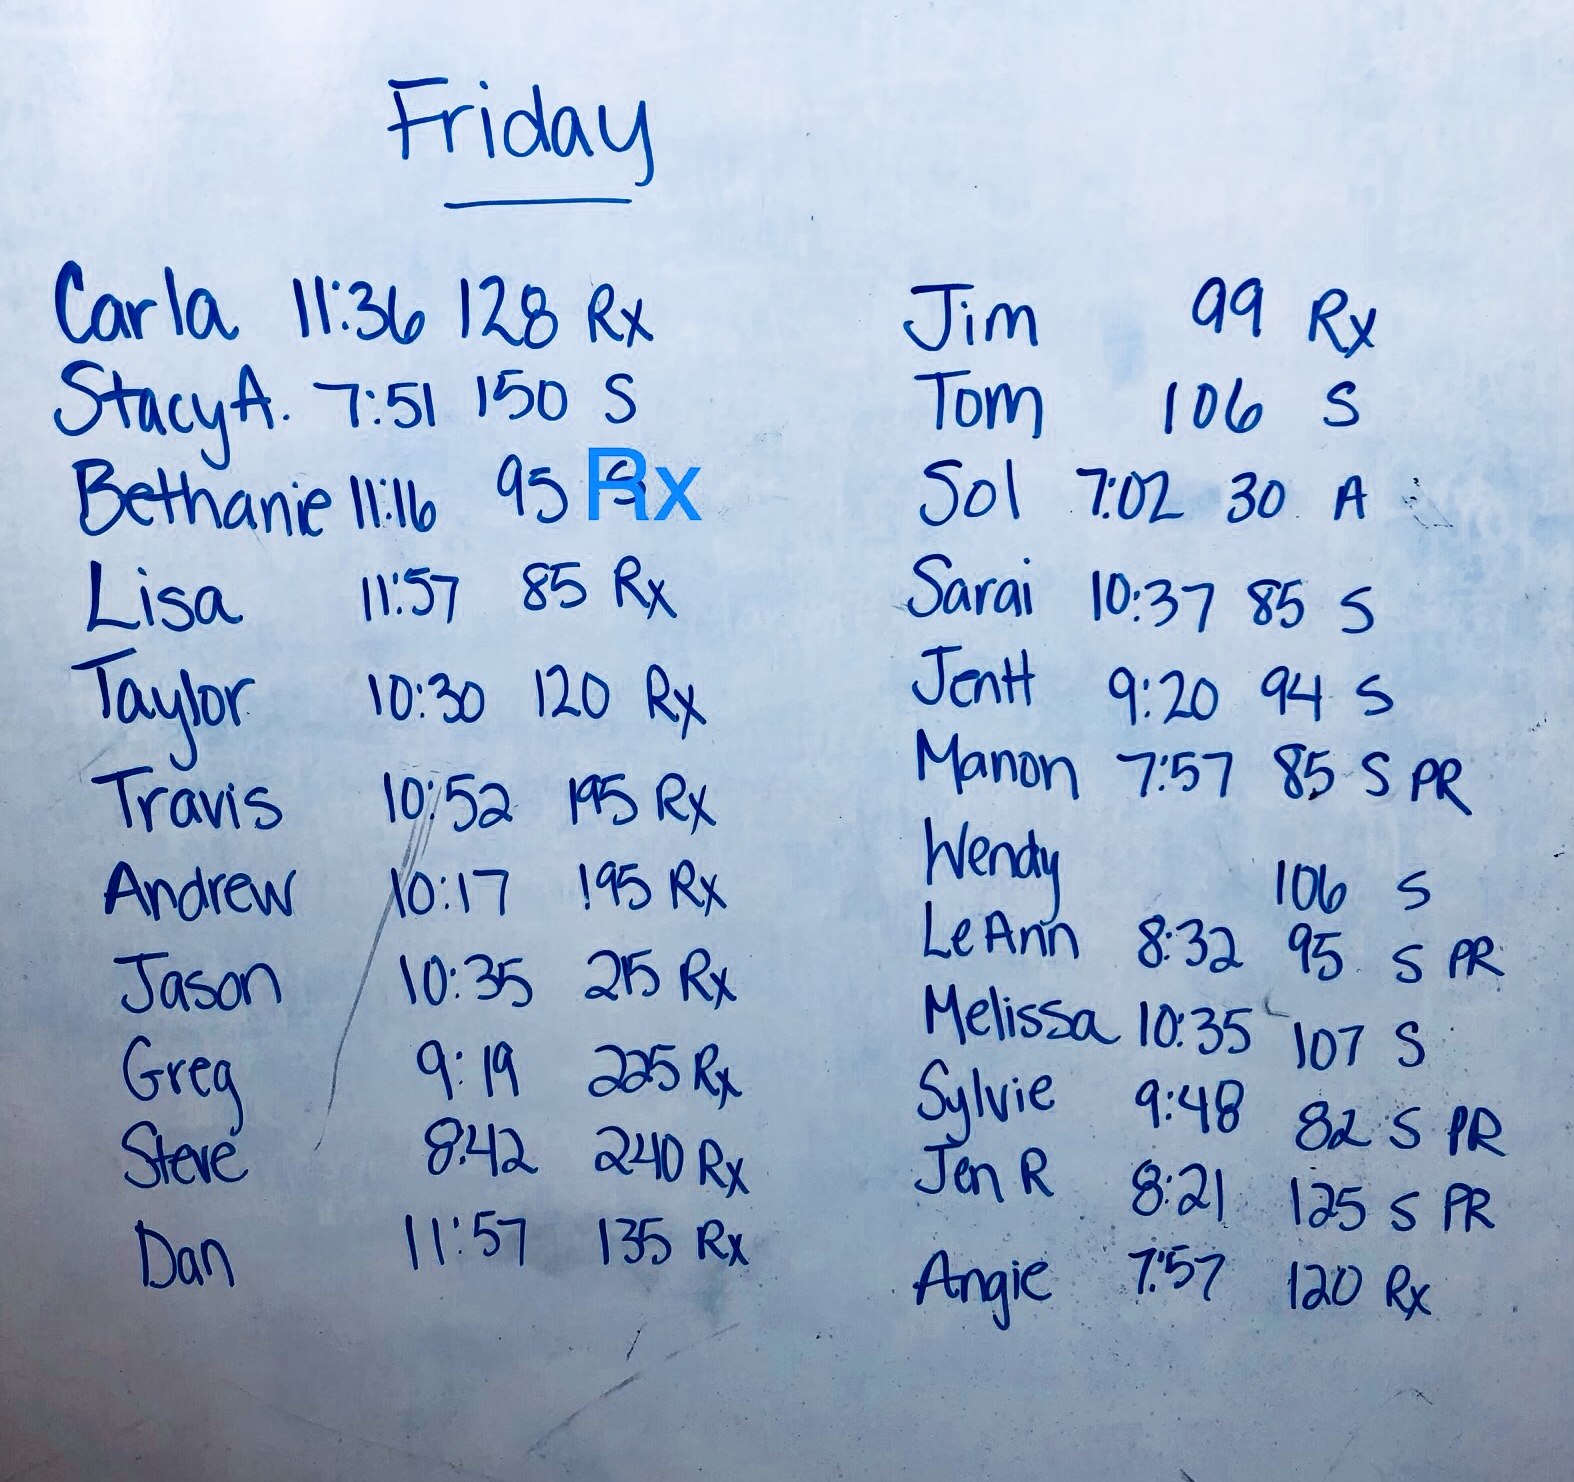 Friday
Carla 11:36 128 Rx
Stacy A. 7:51 150 S
Bethanie 11:16 95 Rx
Lisa 11:57 85 Rx
Taylor 10:30 120 Rx
Travis 10:52 195 Rx
Andrew 10:17 195 Rx
Jason 10:35 215 Rx
Greg 9:19 225 Rx
Steve 8:42 240 Rx
Dan 11:57 135 Rx
Jim 99 Rx
Tom 106 S
Sol 7:02 30 A
Sarai 10:37 85 S
Jen H 9:20 94 S
Manon 7:57 85 S PR
Wendy 106 S
LeAnn 8:32 95 S PR
Melissa 10:35 107 S
Sylvie 9:48 82 S PR
Jen R 8:21 125 S PR
Angie 7:57 120 Rx